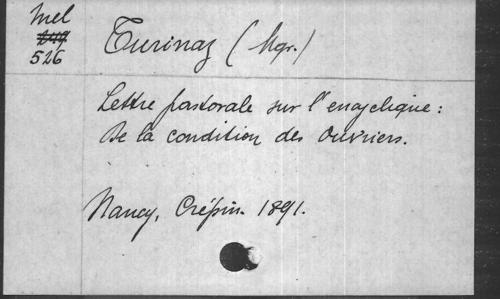 Mel
526
Turinaz (Mgr.)
Lettre pastorale sur l'encyclique:
De la condition des Ouvriers.
Nancy, Crépin. 1891.